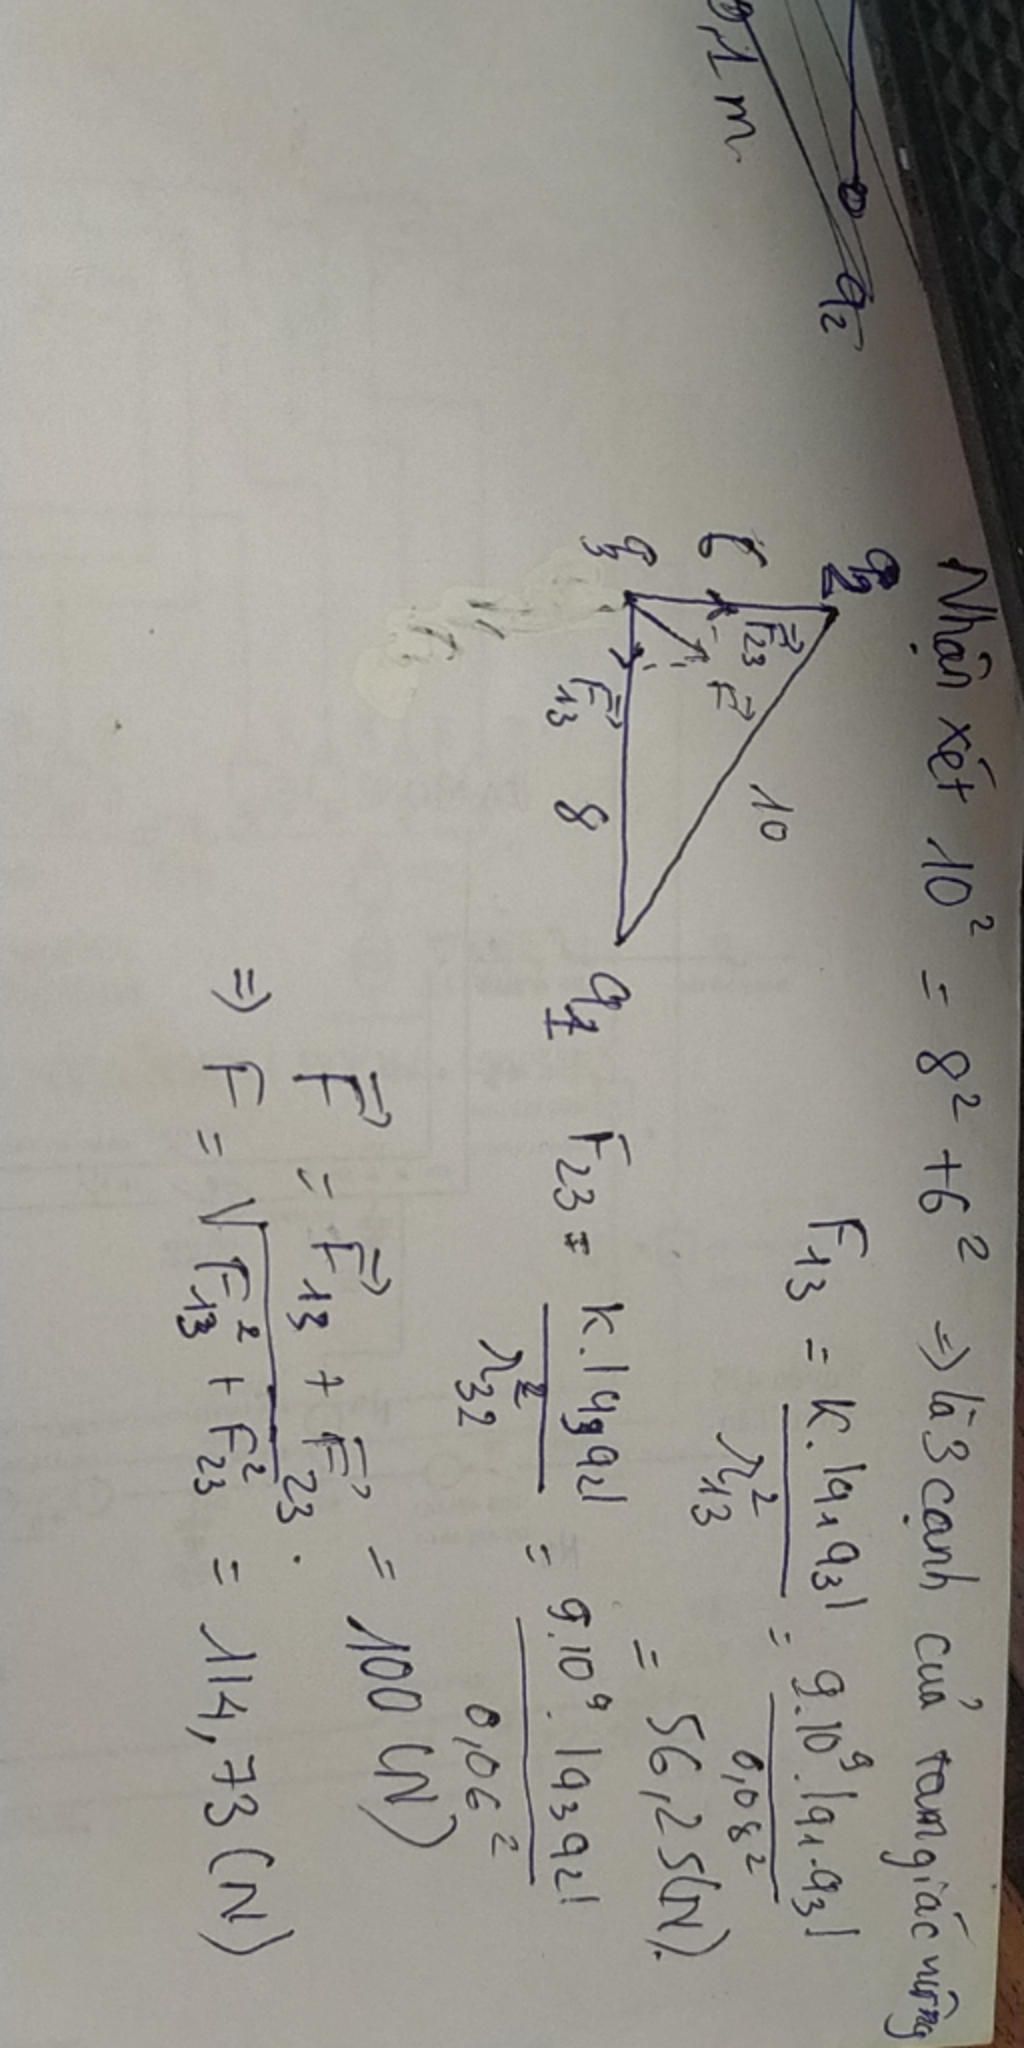 0,1 m
q2
Nhận xét 10² = 8² + 6² => là 3 cạnh của tam giác vuông
q2
6
F⃗23
F⃗
10
q3
F⃗13
8
q1
F13 = k.|q1q3| / r²13 = 9.10⁹.|q1.q3| / 0,08²
= 56,25(N).
F23 = k.|q3q2| / r²32 = 9.10⁹.|q3q2| / 0,06²
= 100(N)
F⃗ = F⃗13 + F⃗23.
=> F = √F²13 + F²23 = 114,73(N)